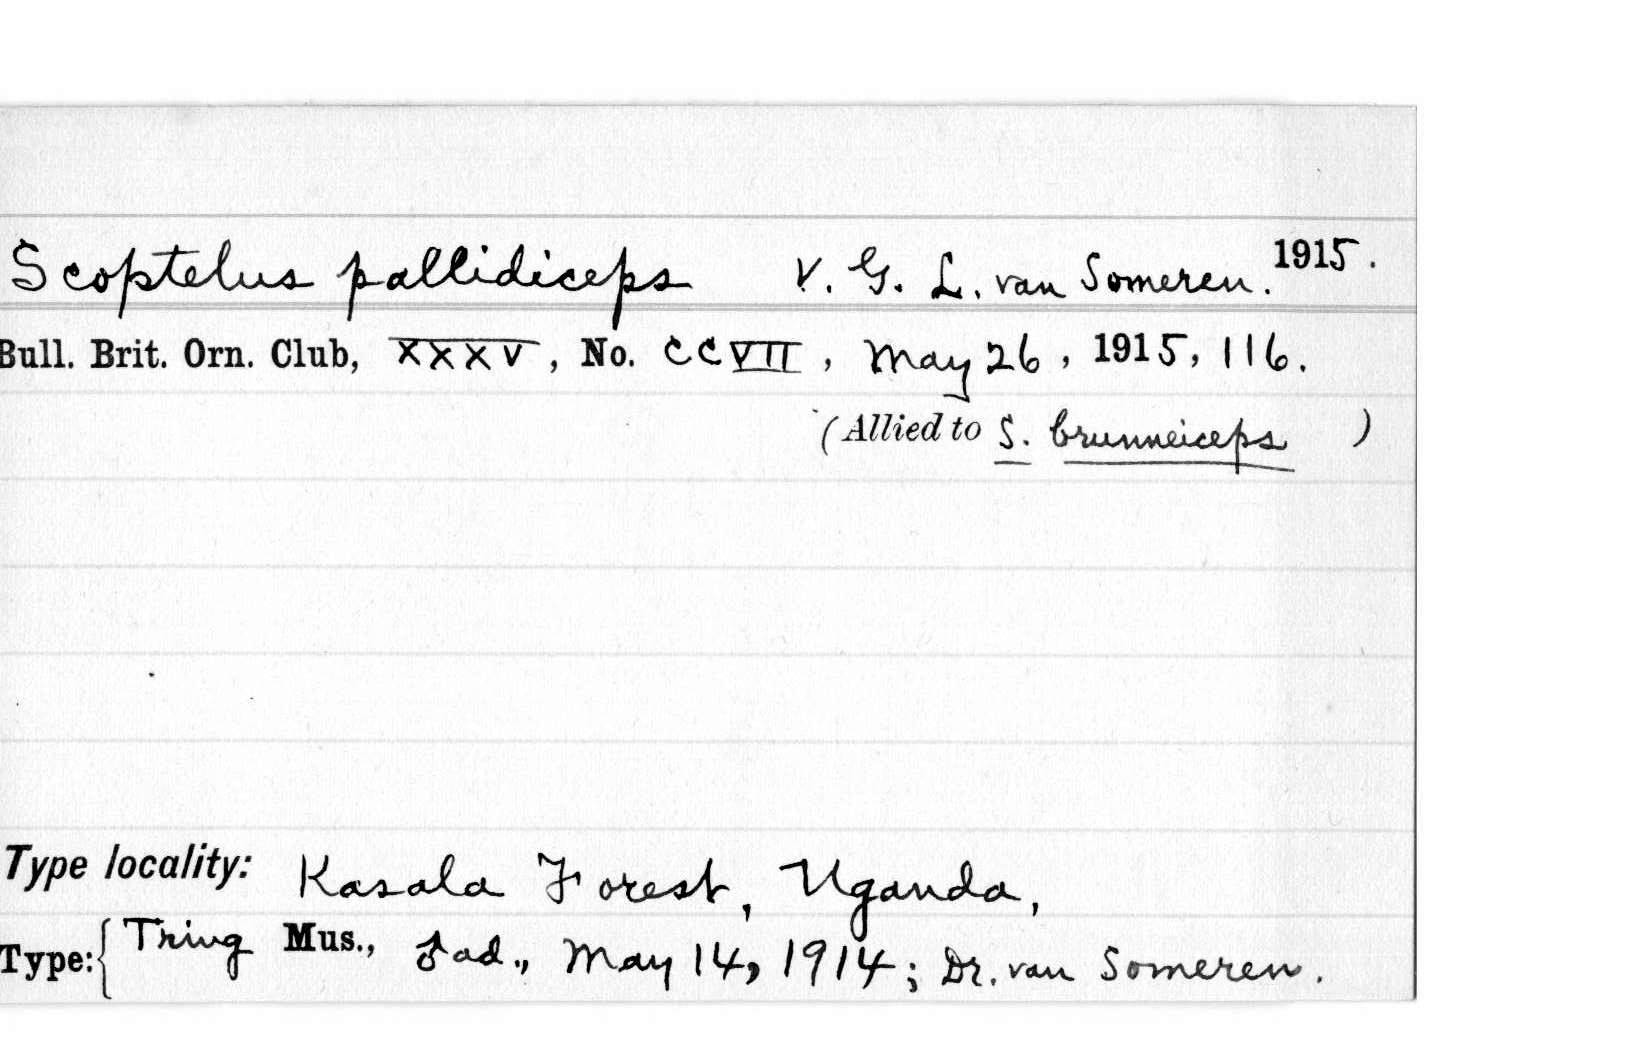 Scoptelus pallidiceps V. G. L. van Someren. 1915.
Bull. Brit. Orn. Club, XXXV, No. CCVII, May 26, 1915, 116.
(Allied to S. brunneiceps )
Type locality: Kasala Forest, Uganda,
Type: { Tring Mus., ♂ ad., May 14, 1914; Dr. van Someren.